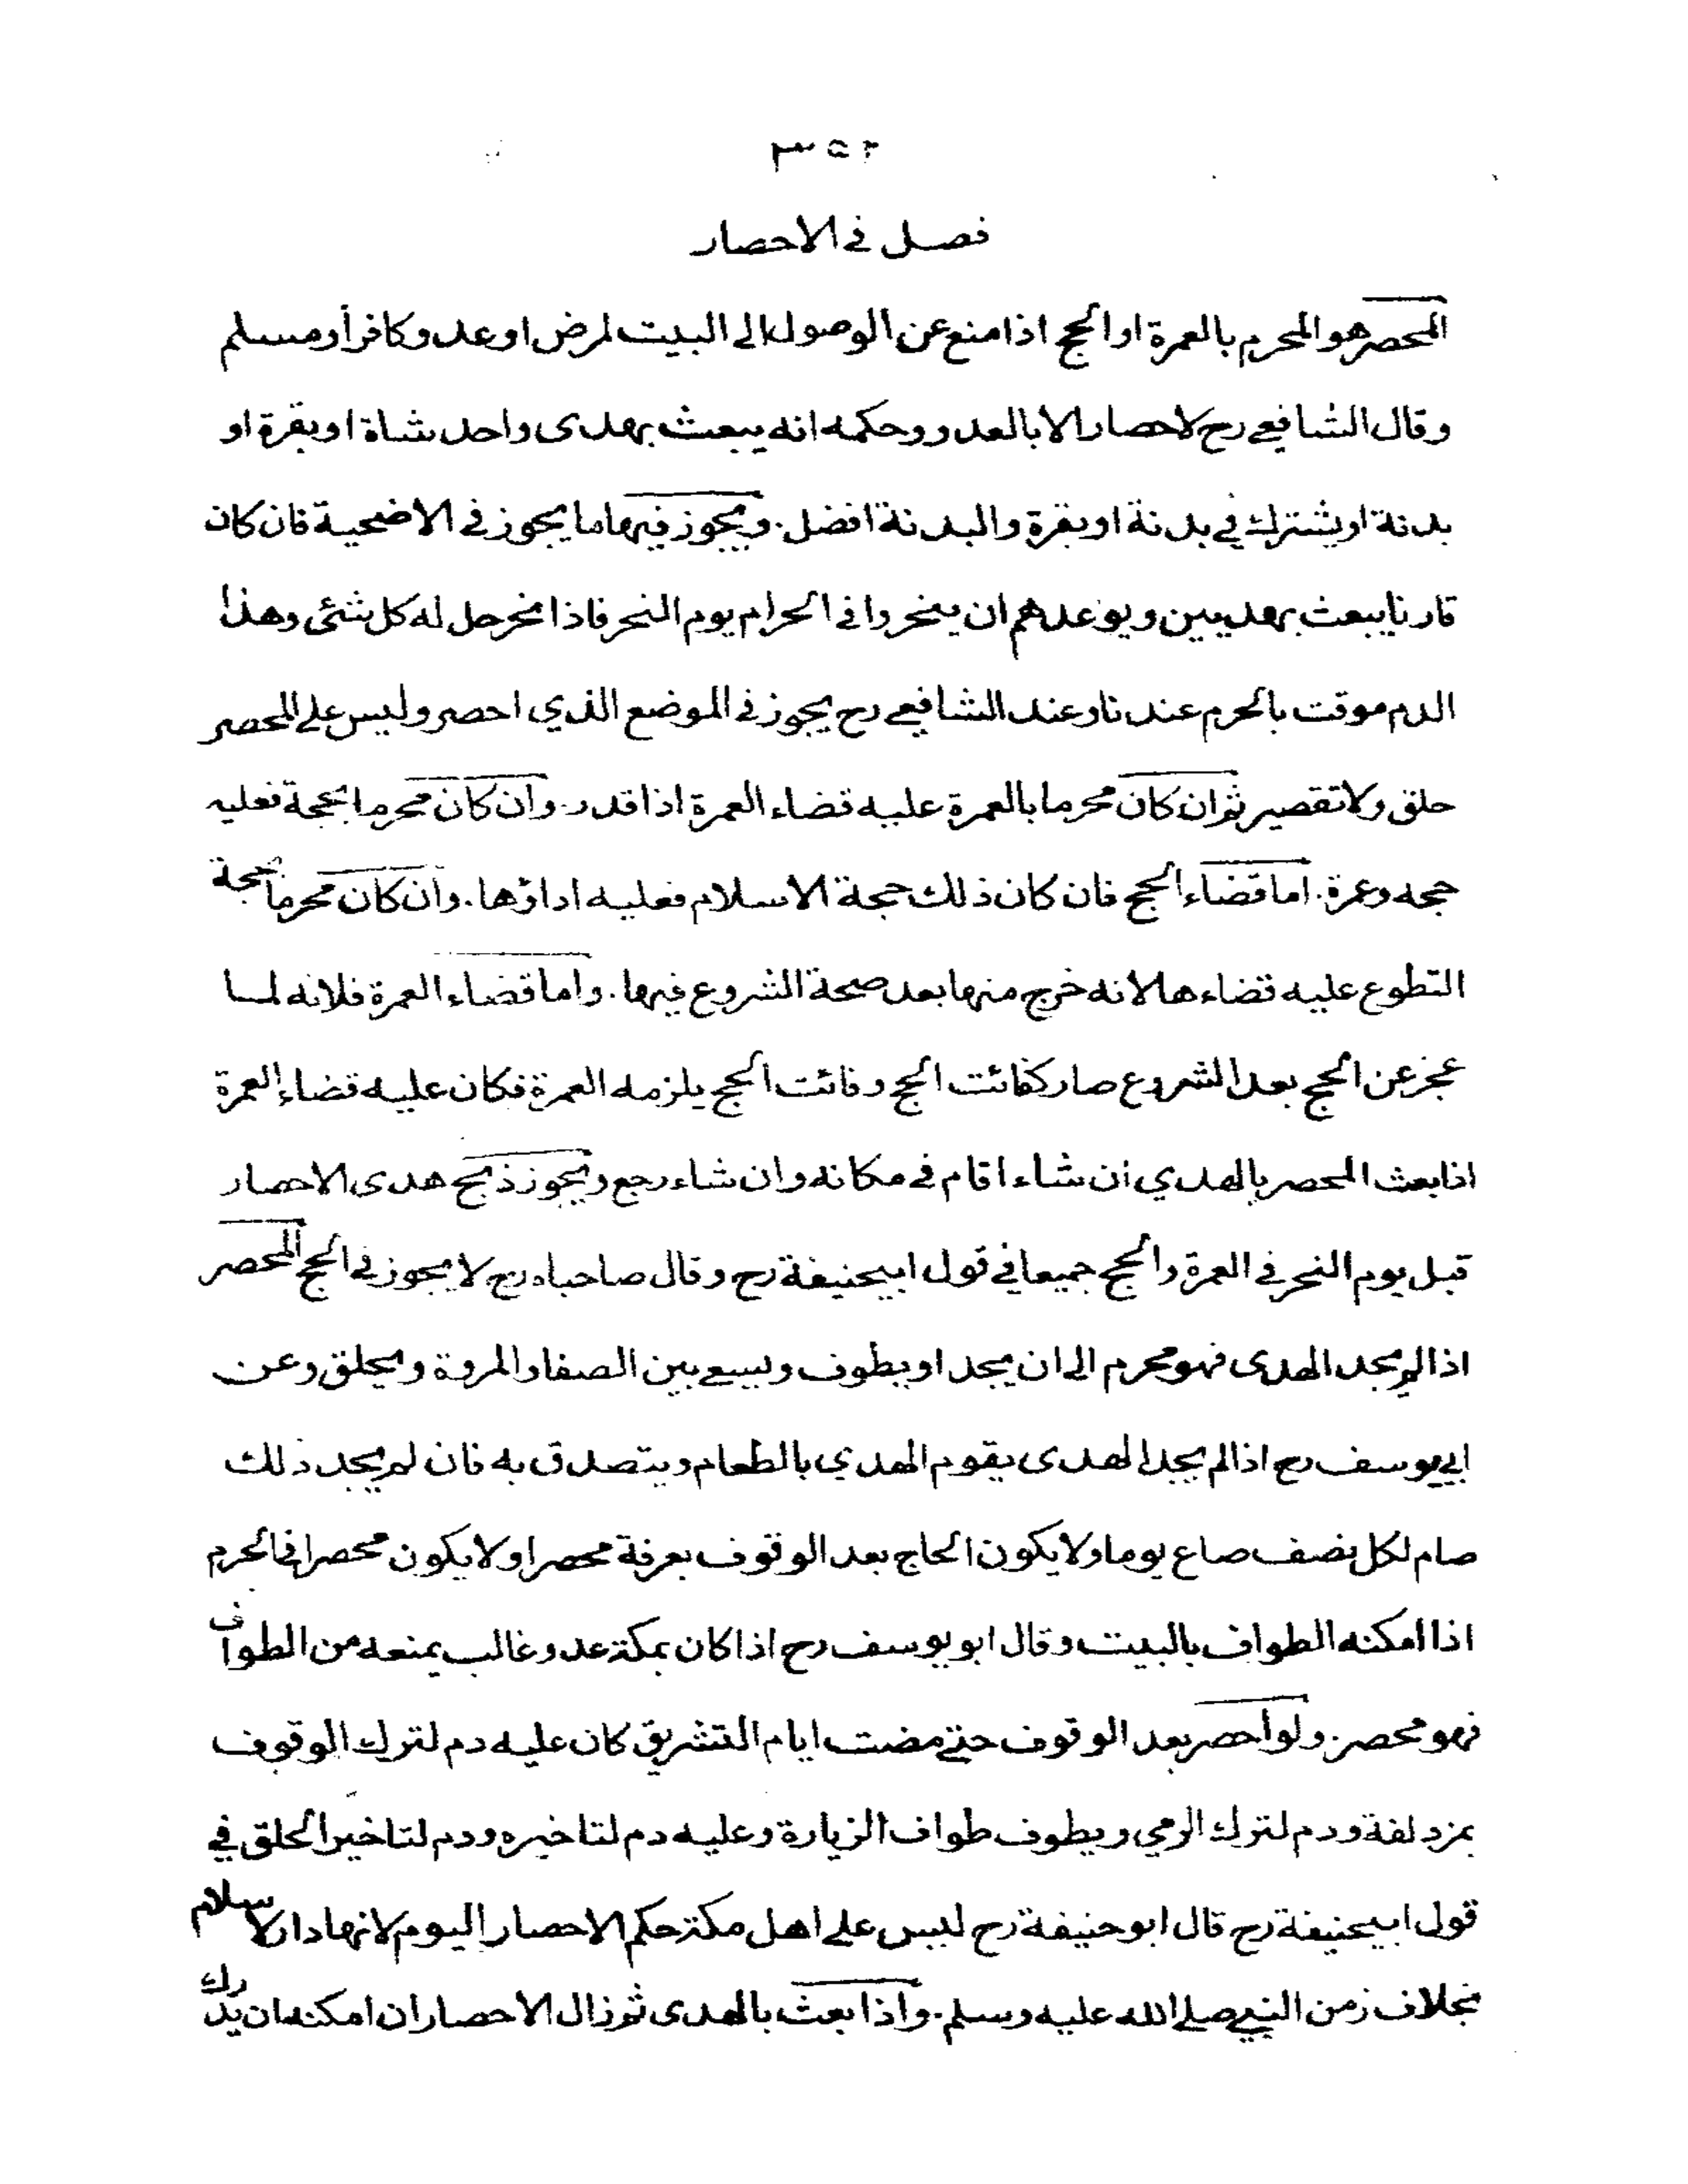 ٣٥٢
فصل في الاحصار
المحصر هو المحرم بالعمرة او الحج اذا منع عن الوصول الى البيت لمرض او عدو كافر أو مسلم
وقال الشافعي رح لا حصار الا بالعدو وحكمه انه يبعث بهدى واحد شاة او بقرة او
بدنة او يشترك في بدنة او بقرة والبدنة افضل. ويجوز فيها ما يجوز في الاضحية فان كان
قارنا يبعث بهديين ويوعدهم ان ينحروا في الحرام يوم النحر فاذا نحر حل له كل شئى وهذا
الدم موقت بالحرم عندنا وعند الشافعي رح يجوز في الموضع الذي احصر وليس على المحصر
حلق ولا تقصير ثم ان كان محرما بالعمرة عليه قضاء العمرة اذا قدر. وان كان محرما بحجة فعليه
حجه وعمرة. اما قضاء الحج فان كان ذلك حجة الاسلام فعليه اداؤها. وان كان محرما بحجة
التطوع عليه قضاءها لانه خرج منها بعد صحة الشروع فيها. واما قضاء العمرة فلانه لما
عجز عن الحج بعد الشروع صار كفائت الحج وفائت الحج يلزمه العمرة فكان عليه قضاء العمرة
اذا بعث المحصر بالهدي ان شاء اقام في مكانه وان شاء رجع ويجوز ذبح هدى الاحصار
قبل يوم النحر في العمرة والحج جميعا في قول ابيحنيفة رح وقال صاحباه رح لا يجوز في الحج المحصر
اذا لم يجد الهدى فهو محرم الى ان يجد او يطوف ويسعى بين الصفا والمروة ويحلق وعن
ابي يوسف رح اذا لم يجد الهدى يقوم الهدي بالطعام ويتصدق به فان لم يجد ذلك
صام لكل نصف صاع يوما ولا يكون الحاج بعد الوقوف بعرفة محصرا ولا يكون محصرا في الحرم
اذا امكنه الطواف بالبيت وقال ابو يوسف رح اذا كان بمكة عدو غالب يمنعه من الطواف
فهو محصر. ولو احصر بعد الوقوف حتى مضت ايام التشريق كان عليه دم لترك الوقوف
بمزدلفة ودم لترك الرمي ويطوف طواف الزيارة وعليه دم لتاخيره ودم لتاخير الحلق في
قول ابيحنيفة رح قال ابو حنيفة رح ليس على اهل مكة حكم الاحصار اليوم لانها دار الاسلام
بخلاف زمن النبي صلى الله عليه وسلم. واذا بعث بالهدى ثم زال الاحصار ان امكنه ان يدرك